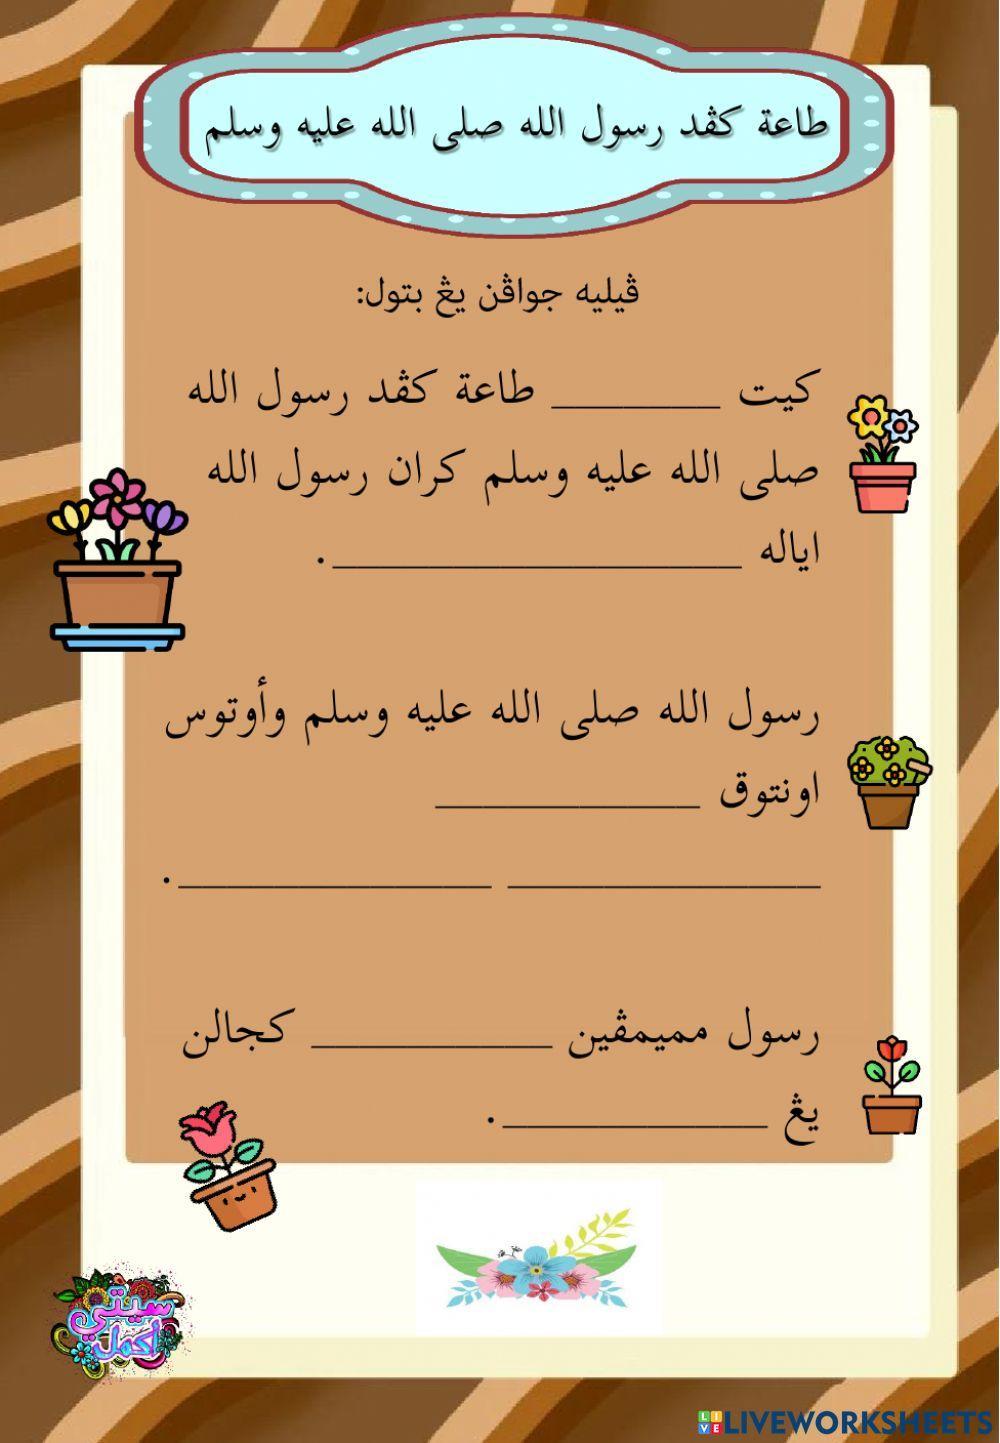 طاعة كڤد رسول الله صلى الله عليه وسلم
ڤيليه جواڤن يڠ بتول:
كيت _______ طاعة كڤد رسول الله
صلى الله عليه وسلم كران رسول الله
اياله _________________.
رسول الله صلى الله عليه وسلم وأوتوس
اونتوق ___________
_____________ _____________.
رسول مميمڤين __________ كجالن
يڠ ___________.
سيتي
اكمل
LIVEWORKSHEETS